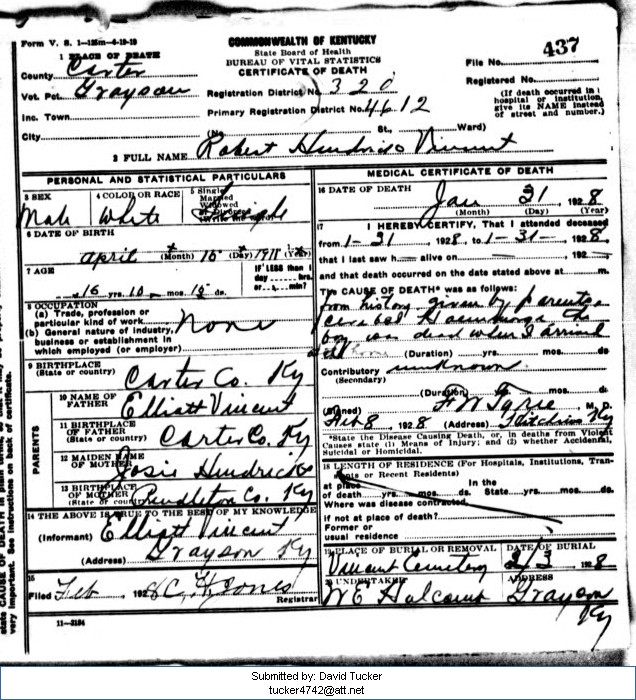 Form V. S. 1-125m-6-19-19
COMMONWEALTH OF KENTUCKY
State Board of Health
BUREAU OF VITAL STATISTICS
CERTIFICATE OF DEATH
1 PLACE OF DEATH
County Carter
Vot. Pct. Grayson
Inc. Town
City
Registration District No. 320
Primary Registration District No. 4612
(No. St., Ward)
File No. 437
Registered No.
(If death occurred in hospital or institution, give its NAME instead of street and number.)
2 FULL NAME Robert Hendricks Vincent
PERSONAL AND STATISTICAL PARTICULARS
3 SEX
Male
4 COLOR OR RACE
White
5 Single
Married
Widowed
or Divorced
(Write the word)
Single
6 DATE OF BIRTH
April 15 1911
(Month) (Day) (Year)
7 AGE
16 yrs. 10 mos. 15 ds.
IF LESS than 1
day hrs.
or min.?
8 OCCUPATION
(a) Trade, profession or
particular kind of work
(b) General nature of industry,
business or establishment in
which employed (or employer)
None
9 BIRTHPLACE
(State or country)
Carter Co. Ky
PARENTS
10 NAME OF
FATHER
Elliatt Vincent
11 BIRTHPLACE
OF FATHER
(State or country)
Carter Co. Ky
12 MAIDEN NAME
OF MOTHER
Josie Hendricks
13 BIRTHPLACE
OF MOTHER
(State or country)
Pendleton Co. Ky
14 THE ABOVE IS TRUE TO THE BEST OF MY KNOWLEDGE
(Informant) Elliatt Vincent
(Address) Grayson Ky
15
Filed Feb 1928 Jones
Registrar
11-3184
MEDICAL CERTIFICATE OF DEATH
16 DATE OF DEATH
Jan 31, 1928
(Month) (Day) (Year)
17 I HEREBY CERTIFY, That I attended deceased
from 1-31, 1928, to 1-31, 1928,
that I last saw h alive on 192
and that death occurred on the date stated above at m.
The CAUSE OF DEATH* was as follows:
from history given by parents
the
boy was dead when I arrived
(Duration) yrs. mos. ds.
Contributory unknown
(Secondary)
(Duration) yrs. mos. ds.
(Signed) M. D.
Feb 8, 1928 (Address) Hitchins Ky
*State the Disease Causing Death, or, in deaths from Violent
Causes state (1) Means of Injury; and (2) whether Accidental,
Suicidal or Homicidal.
18 LENGTH OF RESIDENCE (For Hospitals, Institutions, Transients or Recent Residents)
At place In the
of death yrs. mos. ds. State yrs. mos. ds.
Where was disease contracted,
if not at place of death?
Former or
usual residence
19 PLACE OF BURIAL OR REMOVAL
Vincent Cemetery
DATE OF BURIAL
2/3 1928
20 UNDERTAKER
W E Halcomb
ADDRESS
Grayson
Ky
state CAUSE OF DEATH
very important. See instructions on back of certificate.
Submitted by: David Tucker
tucker4742@att.net